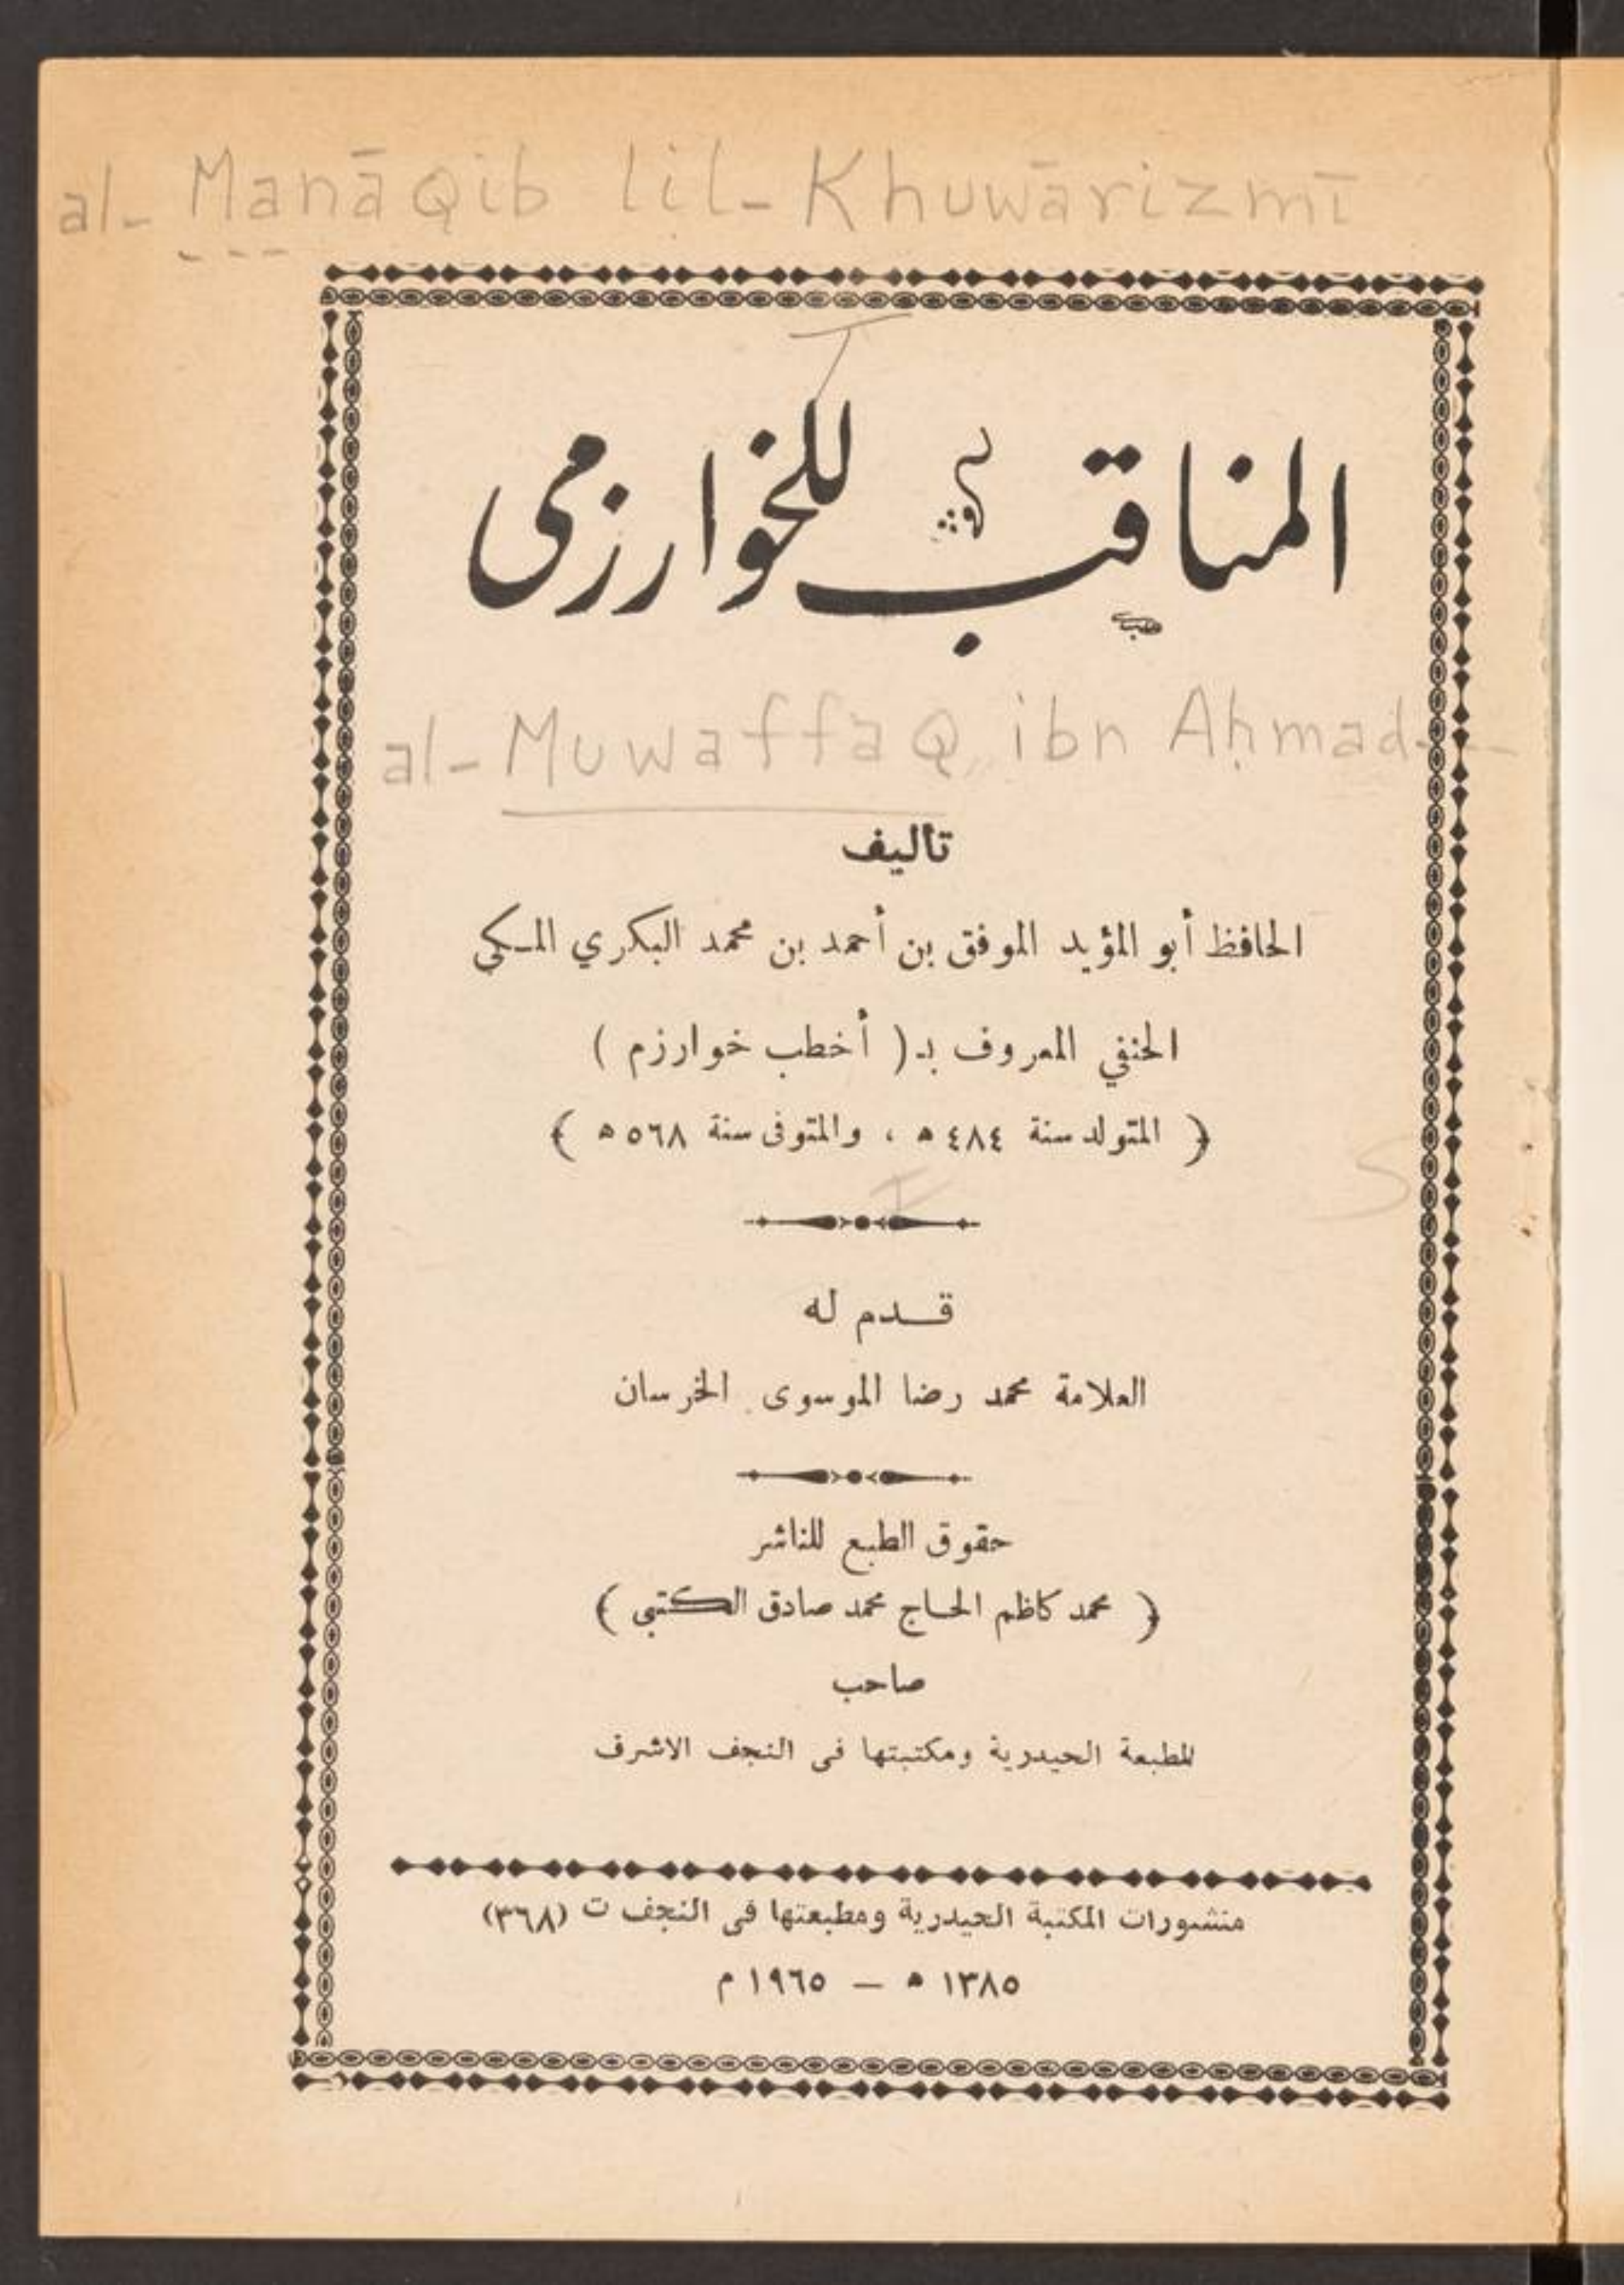 al-Manāqib lil-Khuwārizmī
المناقب للخوارزمى
al-Muwaffaq, ibn Aḥmad--
تأليف
الحافظ أبو المؤيد الموفق بن أحمد بن محمد البكري المـكي
الحنفي المعروف بـ ( أخطب خوارزم )
﴿ المتولد سنة ٤٨٤ ه ، والمتوفى سنة ٥٦٨ ه ﴾
قـــدم له
العلامة محمد رضا الموسوى الخرسان
حقوق الطبع للناشر
﴿ محمد كاظم الحـاج محمد صادق الكتبي ﴾
صاحب
المطبعة الحيدرية ومكتبتها فى النجف الاشرف
منشورات المكتبة الحيدرية ومطبعتها فى النجف ت (٣٦٨)
١٣٨٥ ه — ١٩٦٥ م